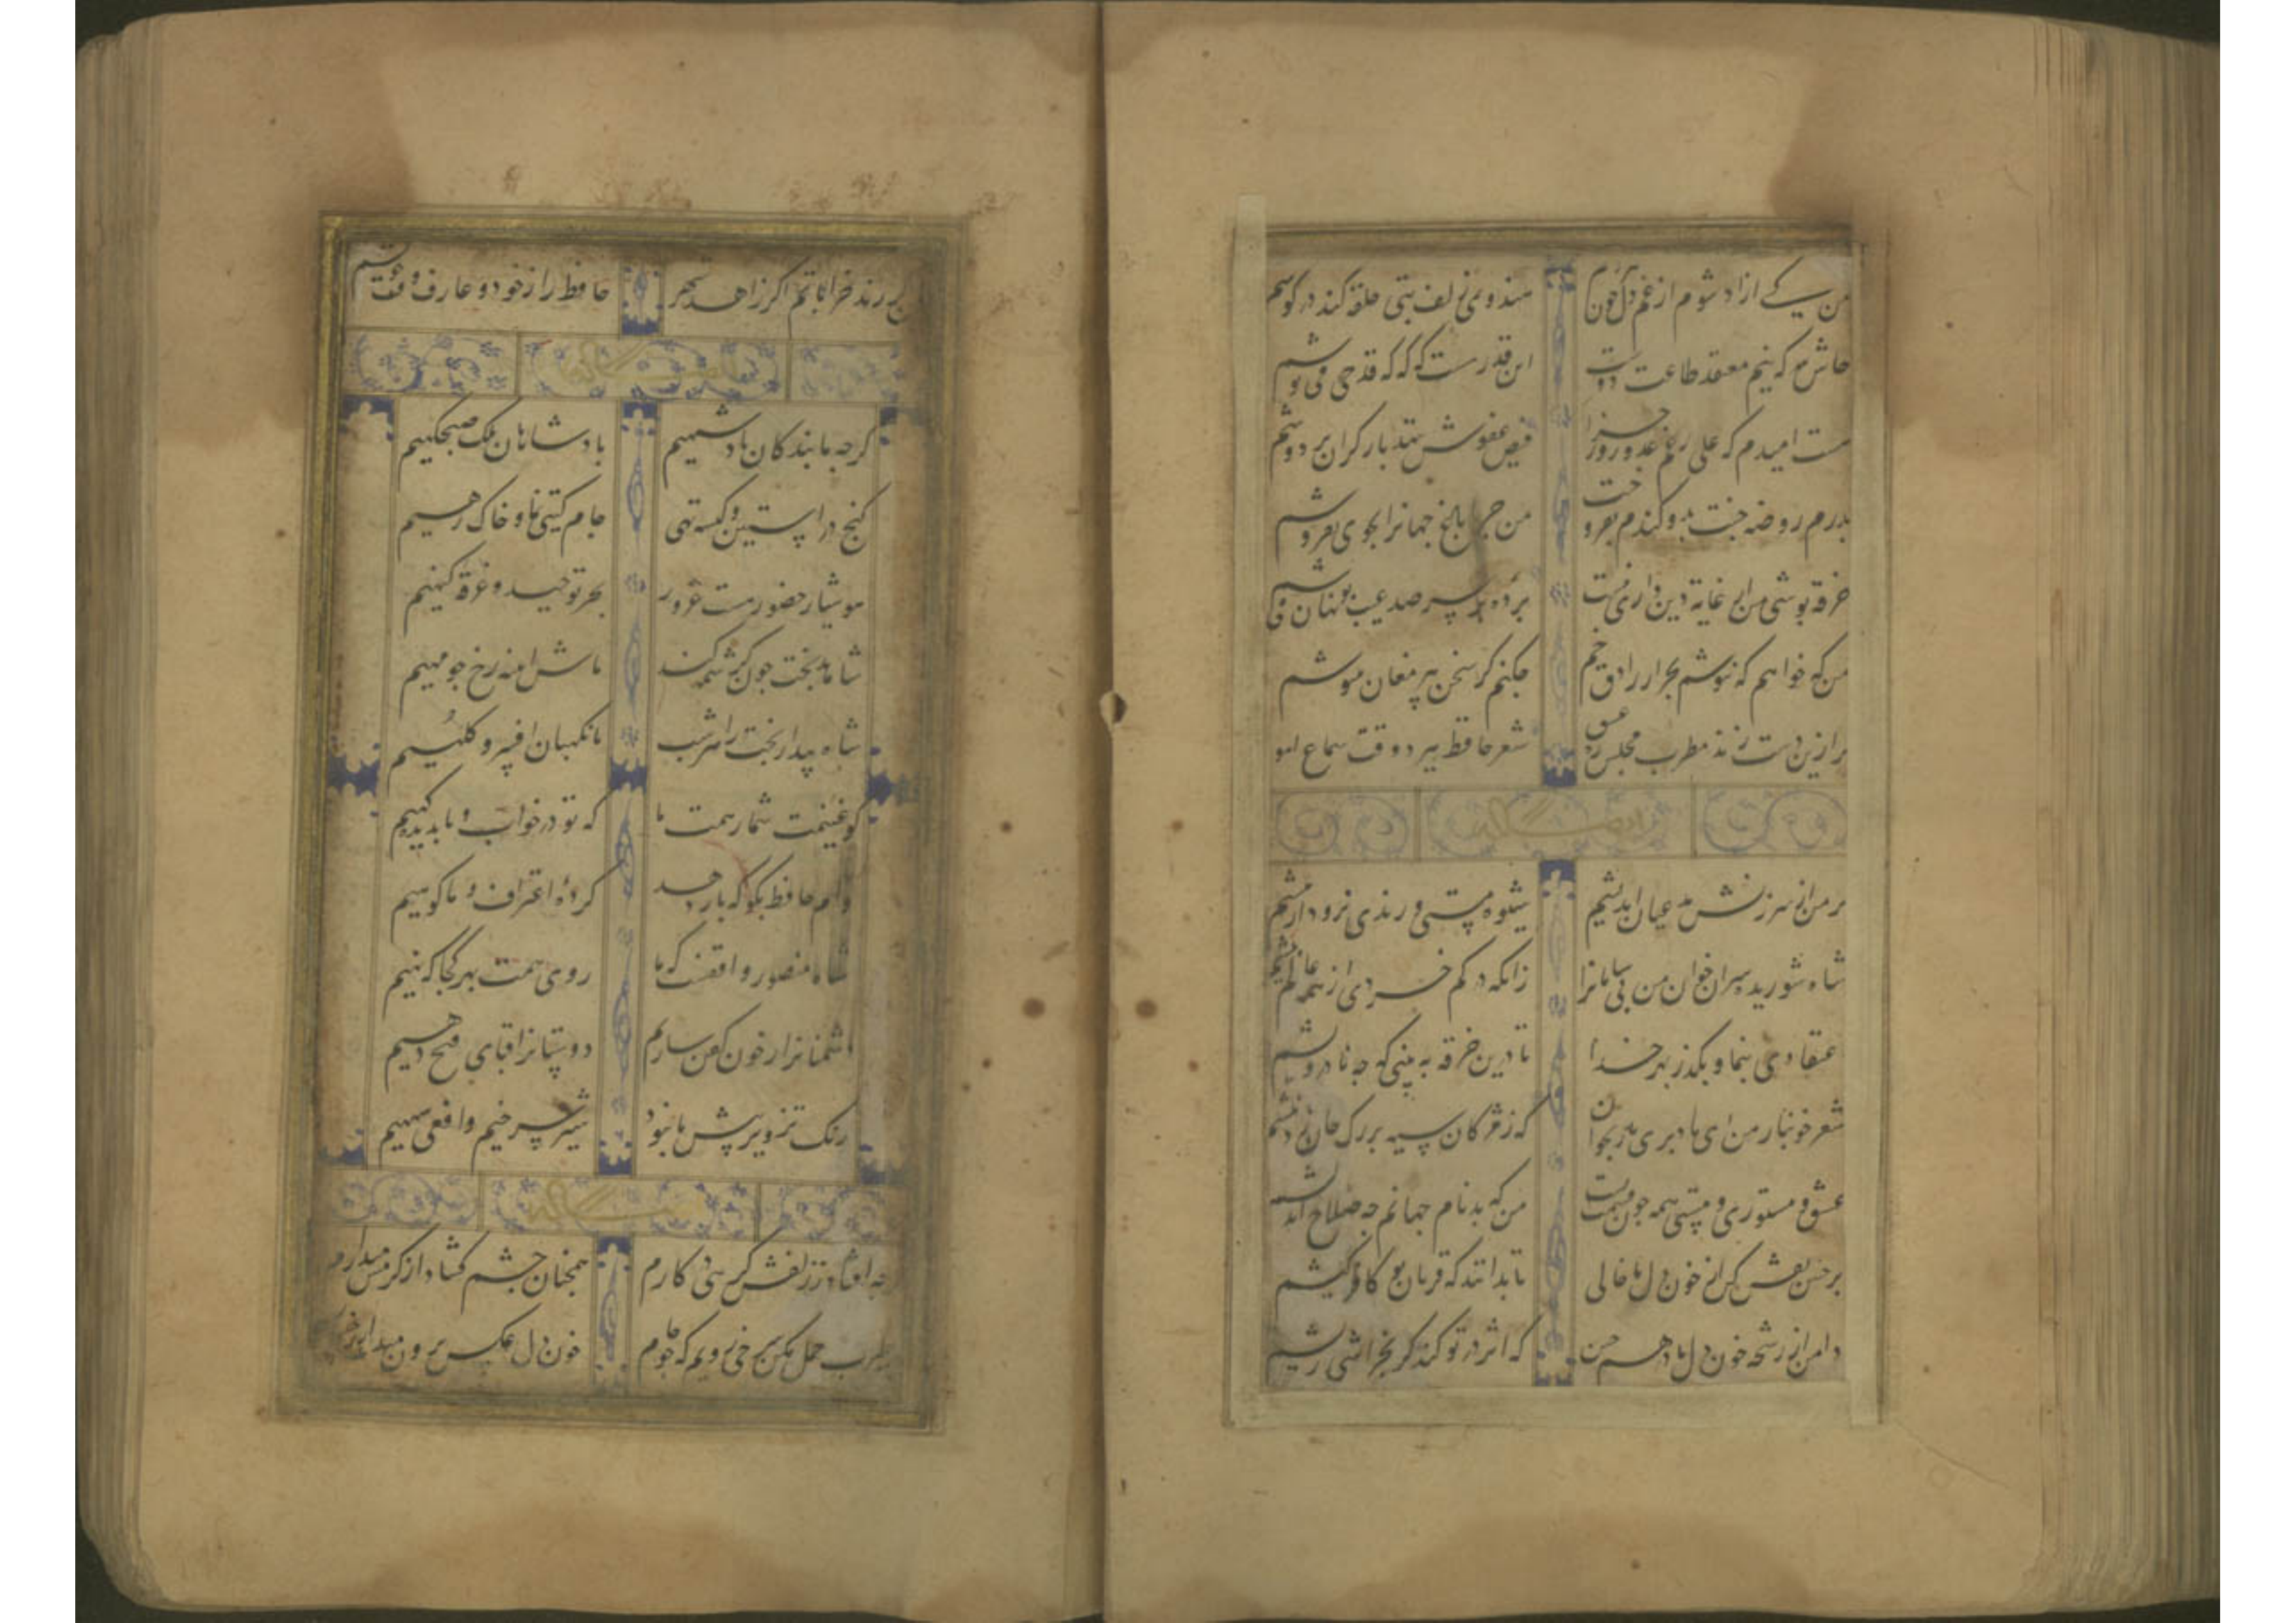 من کی ازاد شوم از غم دل چون هندوی زلف بتی حلقه کند در کوشم
حاش لله که نیم معتقد طاعت دوست این قدر هست که که که قدحی می نوشم
هست امیدم که علی رغم عدو روز جزا فیض عفوش ننهد بار کران بر دوشم
پدرم روضه جنت بدو کندم بفروخت من چرا باغ جهانرا بجوی نفروشم
خرقه پوشی من از غایة دین داری نیست پرده بر سر صد عیب نهان می
من که خواهم که ننوشم بجز از راوق خم چکنم کر سخن پیر مغان ننیوشم
کر ازین دست زند مطرب مجلس ره عشق شعر حافظ ببرد وقت سماع
کر من از سرزنش مدعیان اندیشم شیوه مستی و رندی نرود از پیشم
شاه شوریده سران خوان من بی سامانرا زانکه در کم خردی از همه عالم بیشم
اعتقادی بنما و بکذر بهر خدا تا درین خرقه به بینی که چه نادرویشم
شعر خونبار من ای باد بدان یار بخوان که ز مژکان سیه بر رک جان زد نیشم
عشق و مستوری و مستی همه چون قسمت من که بدنام جهانم چه صلاح اندیشم
بر جبین نقش کن از خون دل ما خالی تا بدانند که قربان تو کافر کیشم
دامن از رشحه خون دل ما در هم چین که اثر در تو کند کر بخراشی ریشم
من رند خراباتم اکر زاهد شهر حافظ راز خود و عارف وقت خویشم
کرچه ما بندکان پادشهیم پادشاهان ملک صبحکهیم
کنج در استین و کیسه تهی جام کیتی نما و خاک رهیم
هوشیار حضور و مست غرور بحر توحید و غرقه کنهیم
شاهد بخت چون کرشمه کند ماش اینه رخ چو مهیم
شاه بیدار بخت را هر شب ما نکهبان افسر و کلهیم
کو غنیمت شمار همت ما که تو در خواب و ما بدیده کهیم
وام حافظ بکو که باز دهد کرده اعتراف و ما کوهیم
شاه منصور واقفست که ما روی همت بهر کجا که نهیم
دشمنانرا ز خون کفن سازیم دوستانرا قبای فتح دهیم
رنک تزویر پیش ما نبود شیر سرخیم و افعی سیهیم
کرچه افتاد ز زلفش کرهی در کارم همچنان چشم کشاد از کرمش میدارم
بطرب حمل مکن سرخی رویم که چو جام خون دل عکس برون میدهد از